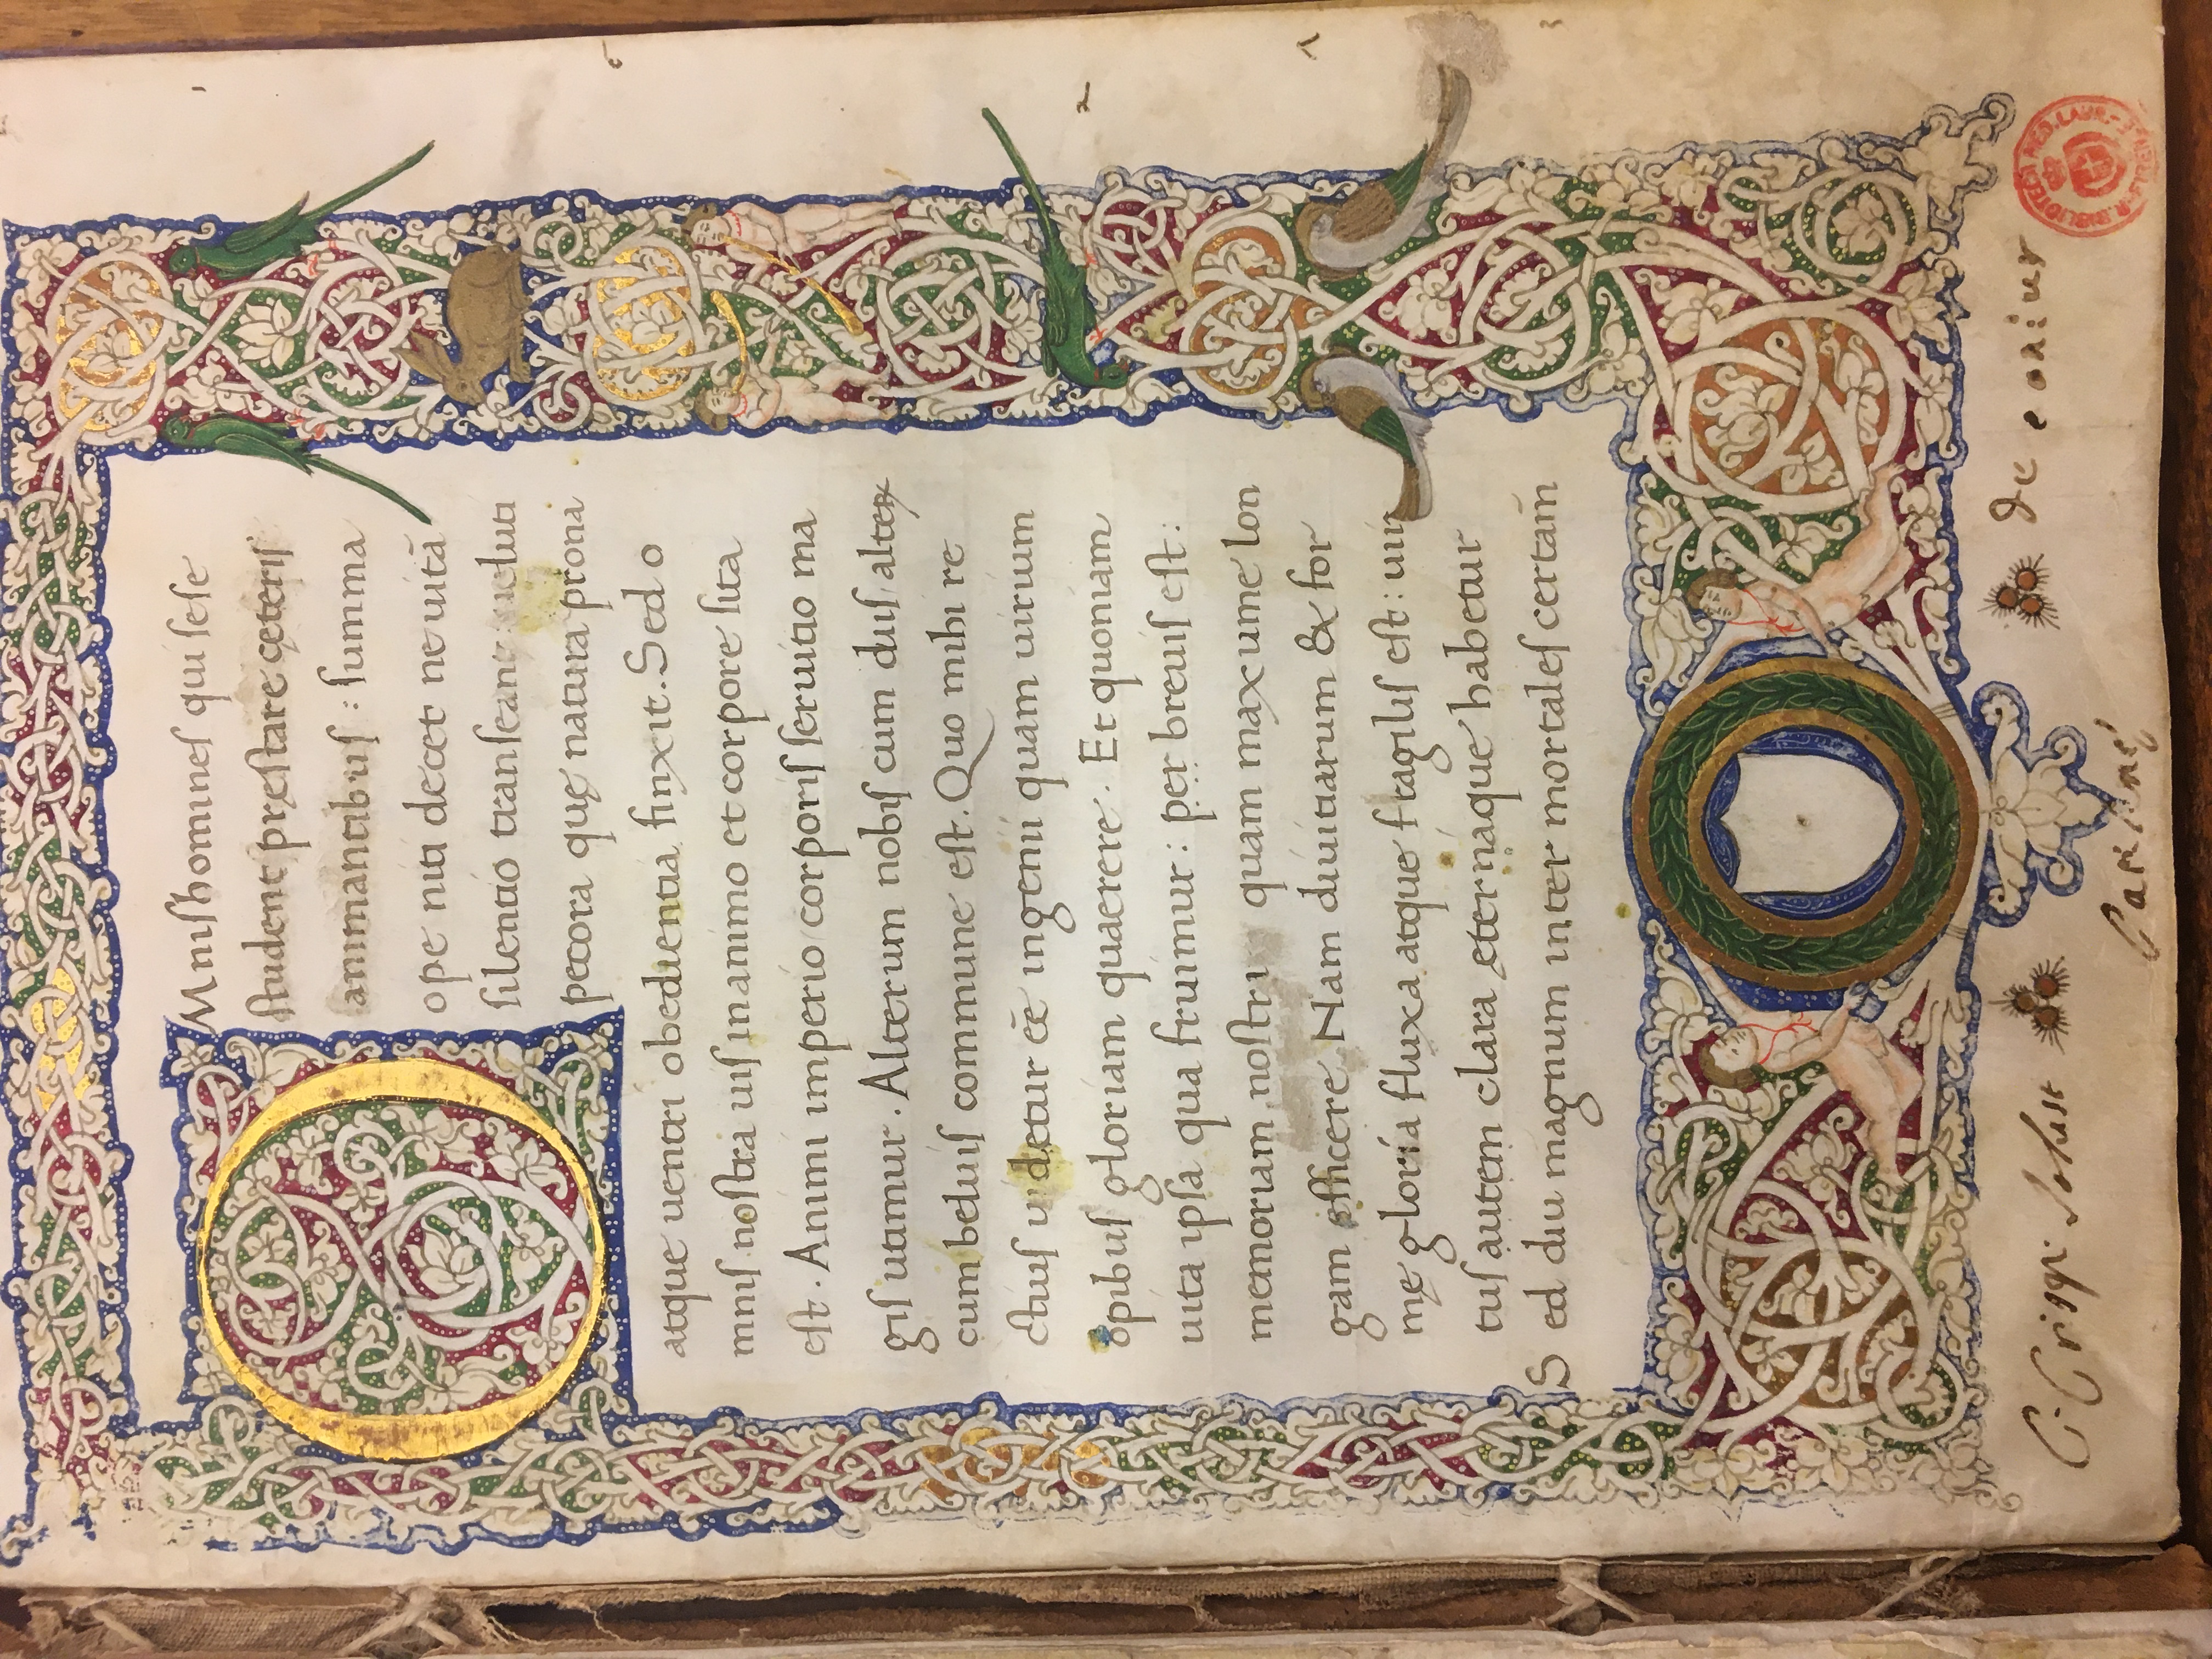 OMnis homines qui sese
student pręstare cęteris
animantibus : summa
ope niti decet ne uitā
silentio transeant ueluti
pecora quę natura prona
atque uentri obedientia finxit. Sed o
mnis nostra uis in animo et corpore sita
est. Animi imperio corporis seruitio ma
gis utimur. Alterum nobis cum diis, alteꝝ
cum beluis commune est. Quo mihi re
ctius uidetur eē ingenii quam uirium
opibus gloriam quaerere. Et quoniam
uita ipsa qua fruimur : per breuis est :
memoriam nostri quam maxume lon
gam efficere. Nam diuitiarum & for
mę gloria fluxa atque fragilis est : uir
tus autem clara ęternaque habetur
Sed diu magnum inter mortales certam̄
C. Crispi Salustii de coniur